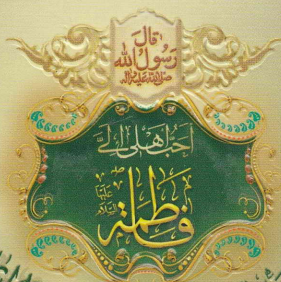 قال
رسول الله
صلی الله علیه وآله
احب اهلی الی
فاطمة
علیها السلام